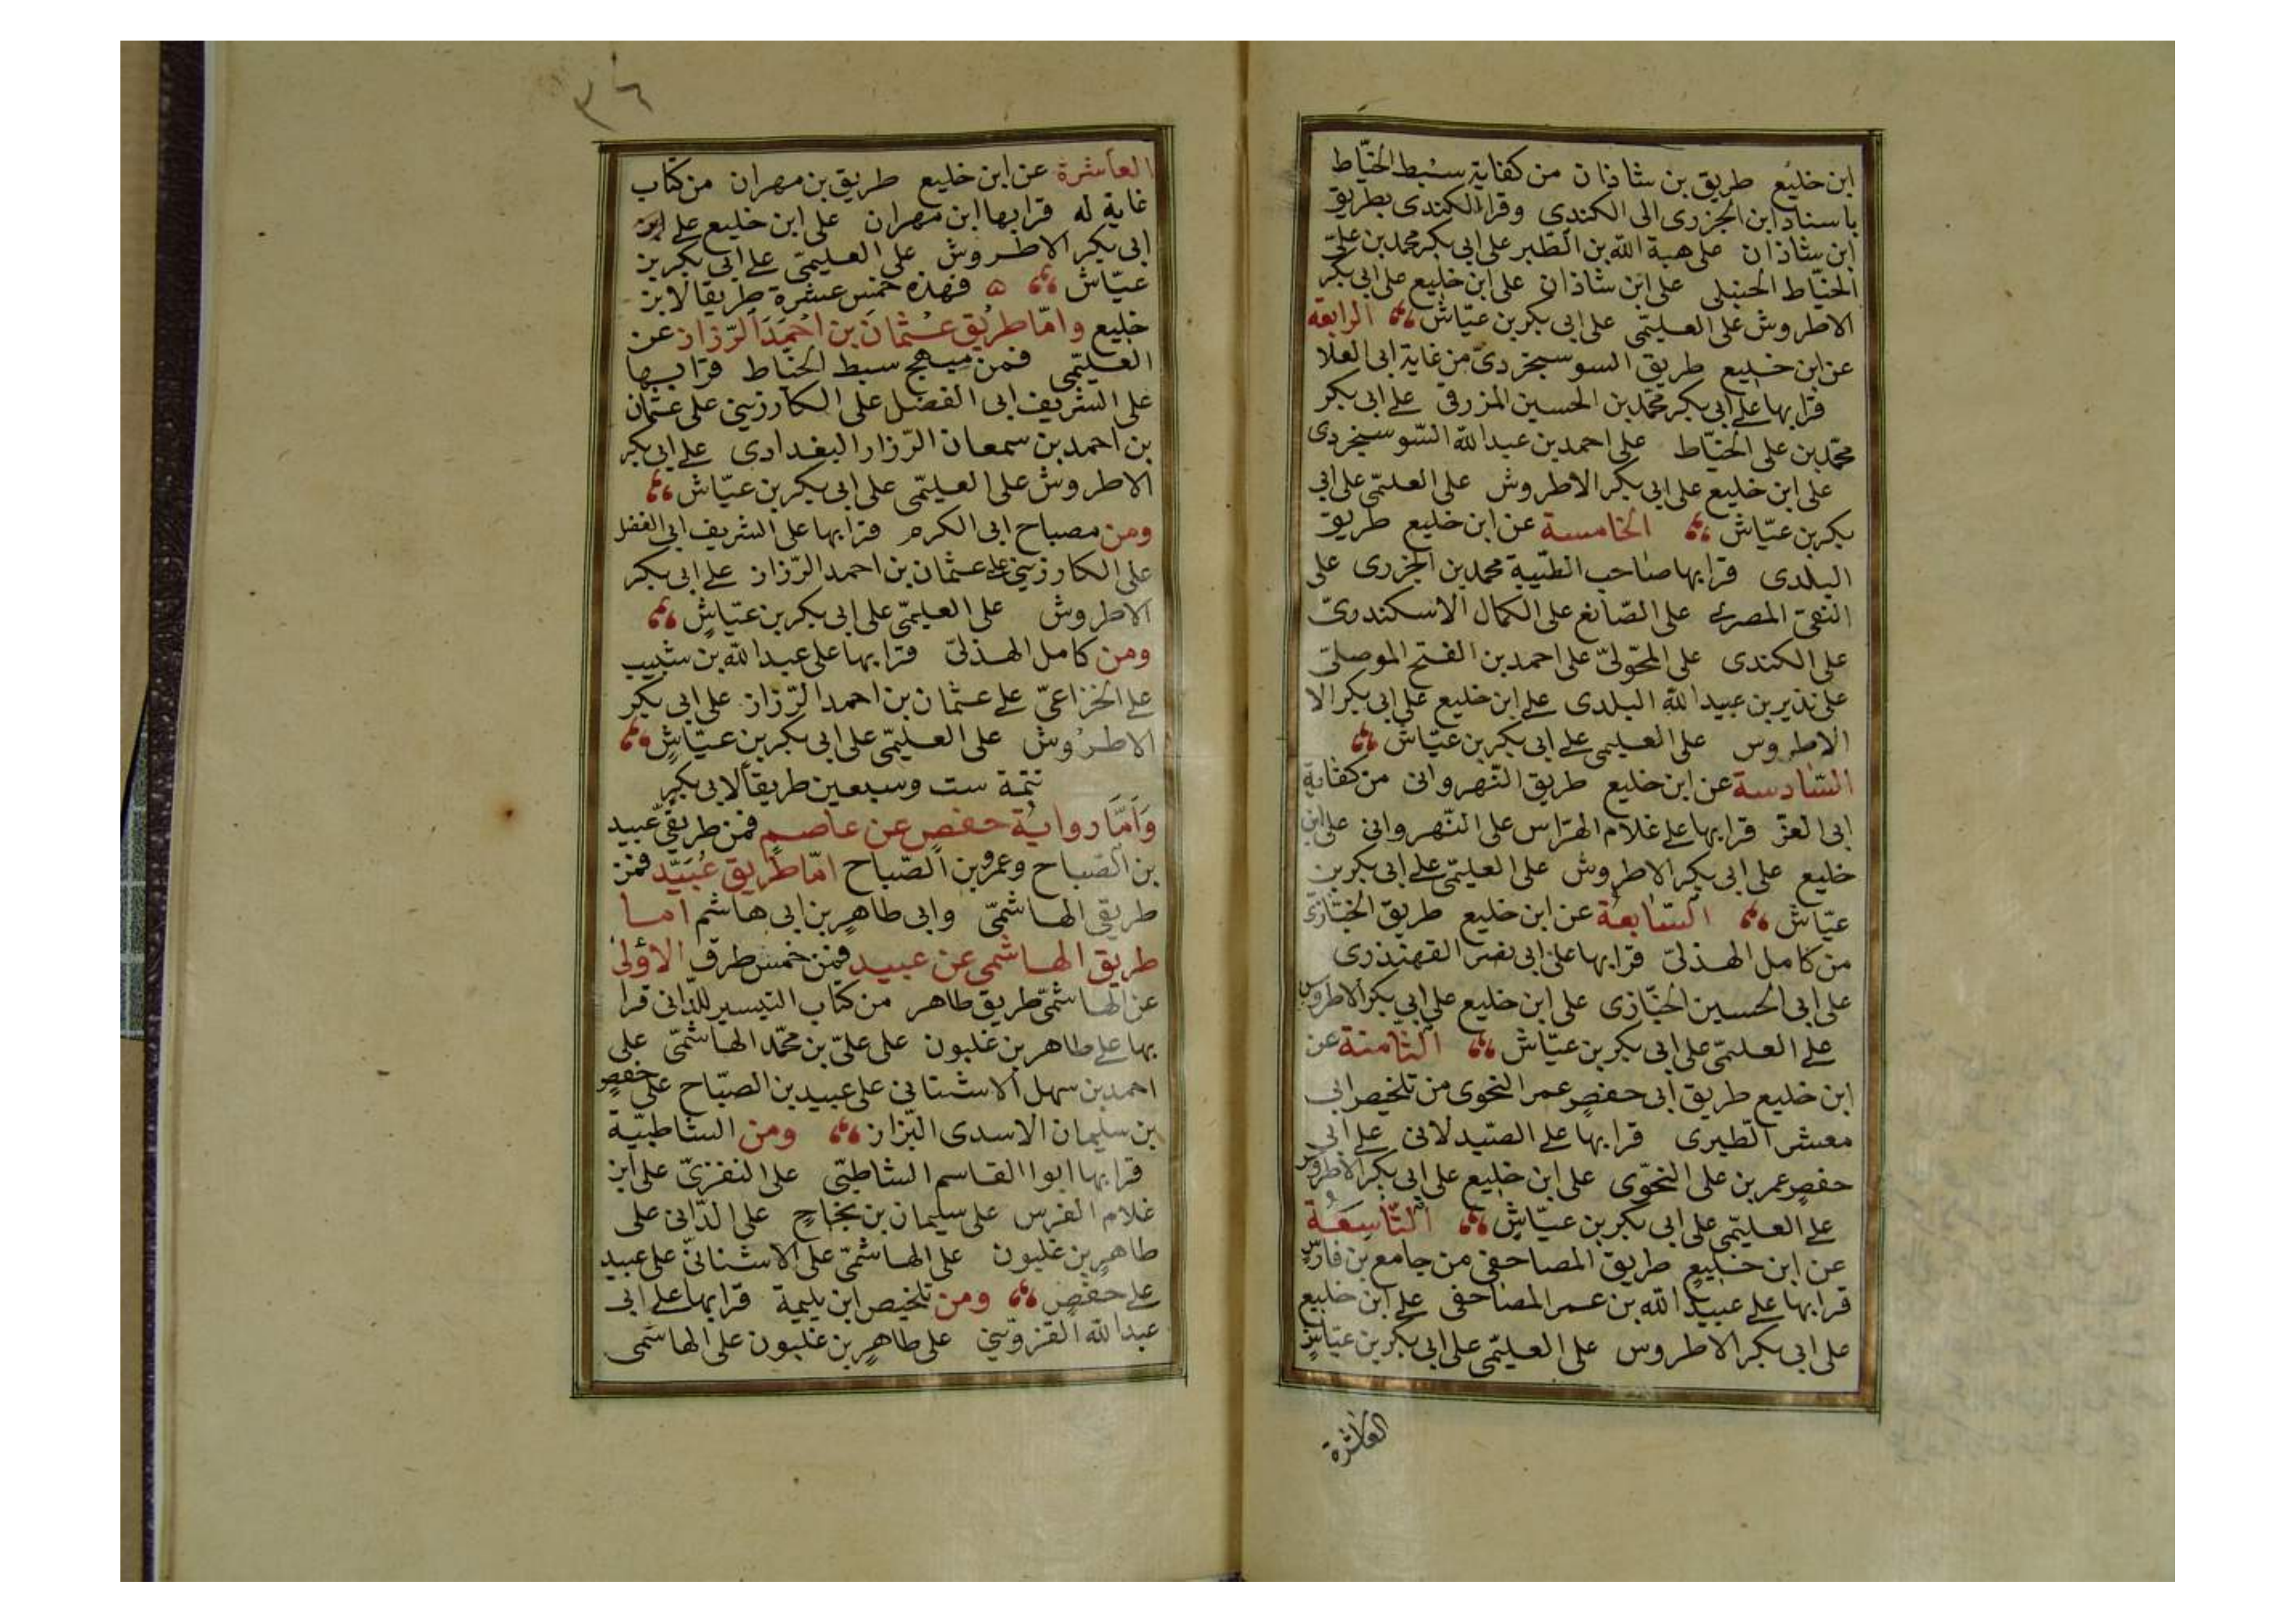 ابن خليع طريق بن شاذان من كفاية سبط الخيّاط
باسناد ابن الجزرى الى الكندى وقرا الكندى بطريق
ابن شاذان على هبة الله بن الطبر على ابى بكر محمد بن علىّ
الخيّاط الحنبلى على ابن شاذان على ابن خليع على ابى بكر
الاطروش على العليمّى على ابى بكر بن عيّاش الرابعة
عن ابن خليع طريق السوسنجردىّ من غاية ابى العلا
قرا بها على ابى بكر محمّد بن الحسين المزرفى على ابى بكر
محمّد بن على الخيّاط على احمد بن عبد الله السّوسنجردى
على ابن خليع على ابى بكر الاطروش على العليمّى على ابى
بكر بن عيّاش الخامسة عن ابن خليع طريق
البلدى قرا بها صاحب الطيّبة محمد بن الجزرى على
التقىّ المصرى على الصّائغ على الكمال الاسكندرىّ
على الكندى على المحّولىّ على احمد بن الفتح الموصلىّ
على نذير بن عبيد الله البلدى على ابن خليع على ابى بكر الا
الاطروس على العليمى على ابى بكر بن عيّاش
السّادسة عن ابن خليع طريق النّهروانى من كفاية
ابى العزّ قرا بها على غلام الهرّاس على النّهروانى على ابن
خليع على ابى بكر الاطروش على العليمّى على ابى بكر بن
عيّاش السّابعة عن ابن خليع طريق الخبّازىّ
من كامل الهذلىّ قرا بها على ابى نصر القهندزى
على ابى الحسين الخبّازى على ابن خليع على ابى بكر الاطروس
على العليمّى على ابى بكر بن عيّاش الثّامنة عن
ابن خليع طريق ابى حفصٍ عمر النحوى من تلخيص ابى
معشر الطّبرى قرا بها على الصّيدلانى على ابى
حفصٍ عمر بن على النحّوى على ابن خليع على ابى بكر الاطروس
على العليمّى على ابى بكر بن عيّاشٍ التّاسعة
عن ابن خليعٍ طريق المصاحفى من جامع بن فارسٍ
قرا بها على عبيد الله بن عمر المصاحفى على ابن خليع
على ابى بكر الاطروس على العليمّى على ابى بكر بن عيّاشٍ
العاشرة
٣٦
العاشرة عن ابن خليع طريق بن مهران من كتاب
غاية له قرا بها ابن مهران على ابن خليع على ابن
ابى بكر الاطروش على العليمىّ على ابى بكر بن
عيّاش ۵ فهذه خمس عشرة طريقا لابن
خليع وامّا طريق عثمان بن احمد الرّزاز عن
العليمّى فمن مبهج سبط الخيّاط قرا بها
على الشريف ابى الفضل على الكارزينى على عثمان
بن احمد بن سمعان الرّزاز البغدادى على ابى بكر
الاطروش على العليمّى على ابى بكر بن عيّاش
ومن مصباح ابى الكرم قرا بها على الشريف ابى الفضل
على الكارزينى على عثمان بن احمد الرّزاز على ابى بكر
الاطروش على العليمّى على ابى بكر بن عيّاشٍ
ومن كامل الهذلىّ قرا بها على عبد الله بن شبيب
على الخزاعىّ على عثمان بن احمد الرّزاز على ابى بكر
الاطروش على العليمّى على ابى بكر بن عيّاشٍ
تتمة ست وسبعين طريقاً لابى بكرٍ
وَاَمَّا رواية حفصٍ عن عاصمٍ فمن طريقى عبيد
بن الصباح وعمرو بن الصّباح امّا طريق عُبَيّد فمن
طريقى الهاشمىّ وابى طاهرٍ بن ابى هاشم اما
طريق الهاشمى عن عبيد فمن خمس طرق الاولى
عن الهاشمىّ طريق طاهر من كتاب التيسير للدّانى قرا
بها على طاهر بن غلبون على علىّ بن محمّد الهاشمىّ على
احمد بن سهل الاشنانى على عبيد بن الصبّاح على حفصٍ
بن سليمان الاسدى البزّاز ومن الشاطبيّة
قرا بها ابوا القاسم الشاطبّى على النفزىّ على ابن
غلام الفرس على سليمان بن نجاحٍ على الدّانى على
طاهرٍ بن غلبون على الهاشمىّ على الاشنانىّ على عبيد
على حفصٍ ومن تلخيص ابن بليمة قرا بها على ابى
عبد الله القزوينى على طاهرٍ بن غلبون على الهاشمى